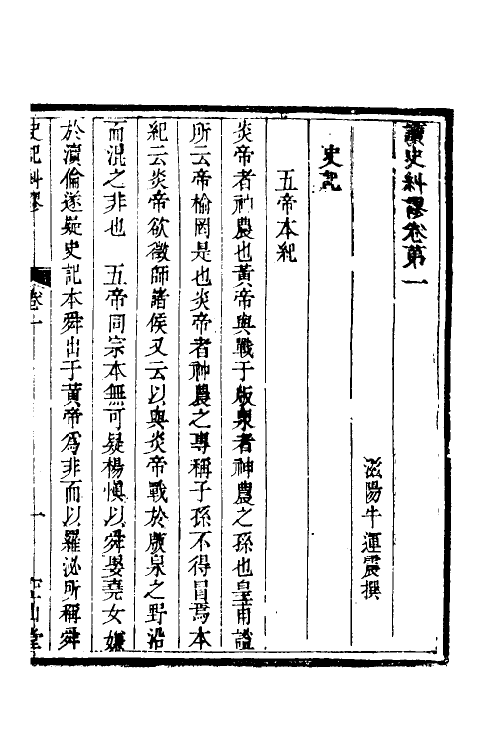 讀史糾謬卷第一
滋陽牛運震撰
史記
五帝本紀
炎帝者神農也黃帝與戰于版泉者神農之孫也皇甫謐
所云帝榆罔是也炎帝者神農之專稱子孫不得冒焉本
紀云炎帝欲徵師諸侯又云以與炎帝戰於版泉之野沿
而混之非也 五帝同宗本無可疑楊慎以舜娶堯女嫌
於瀆倫遂疑史記本舜出于黃帝為非而以羅泌所稱舜
史記糾謬 卷一 一 空山堂